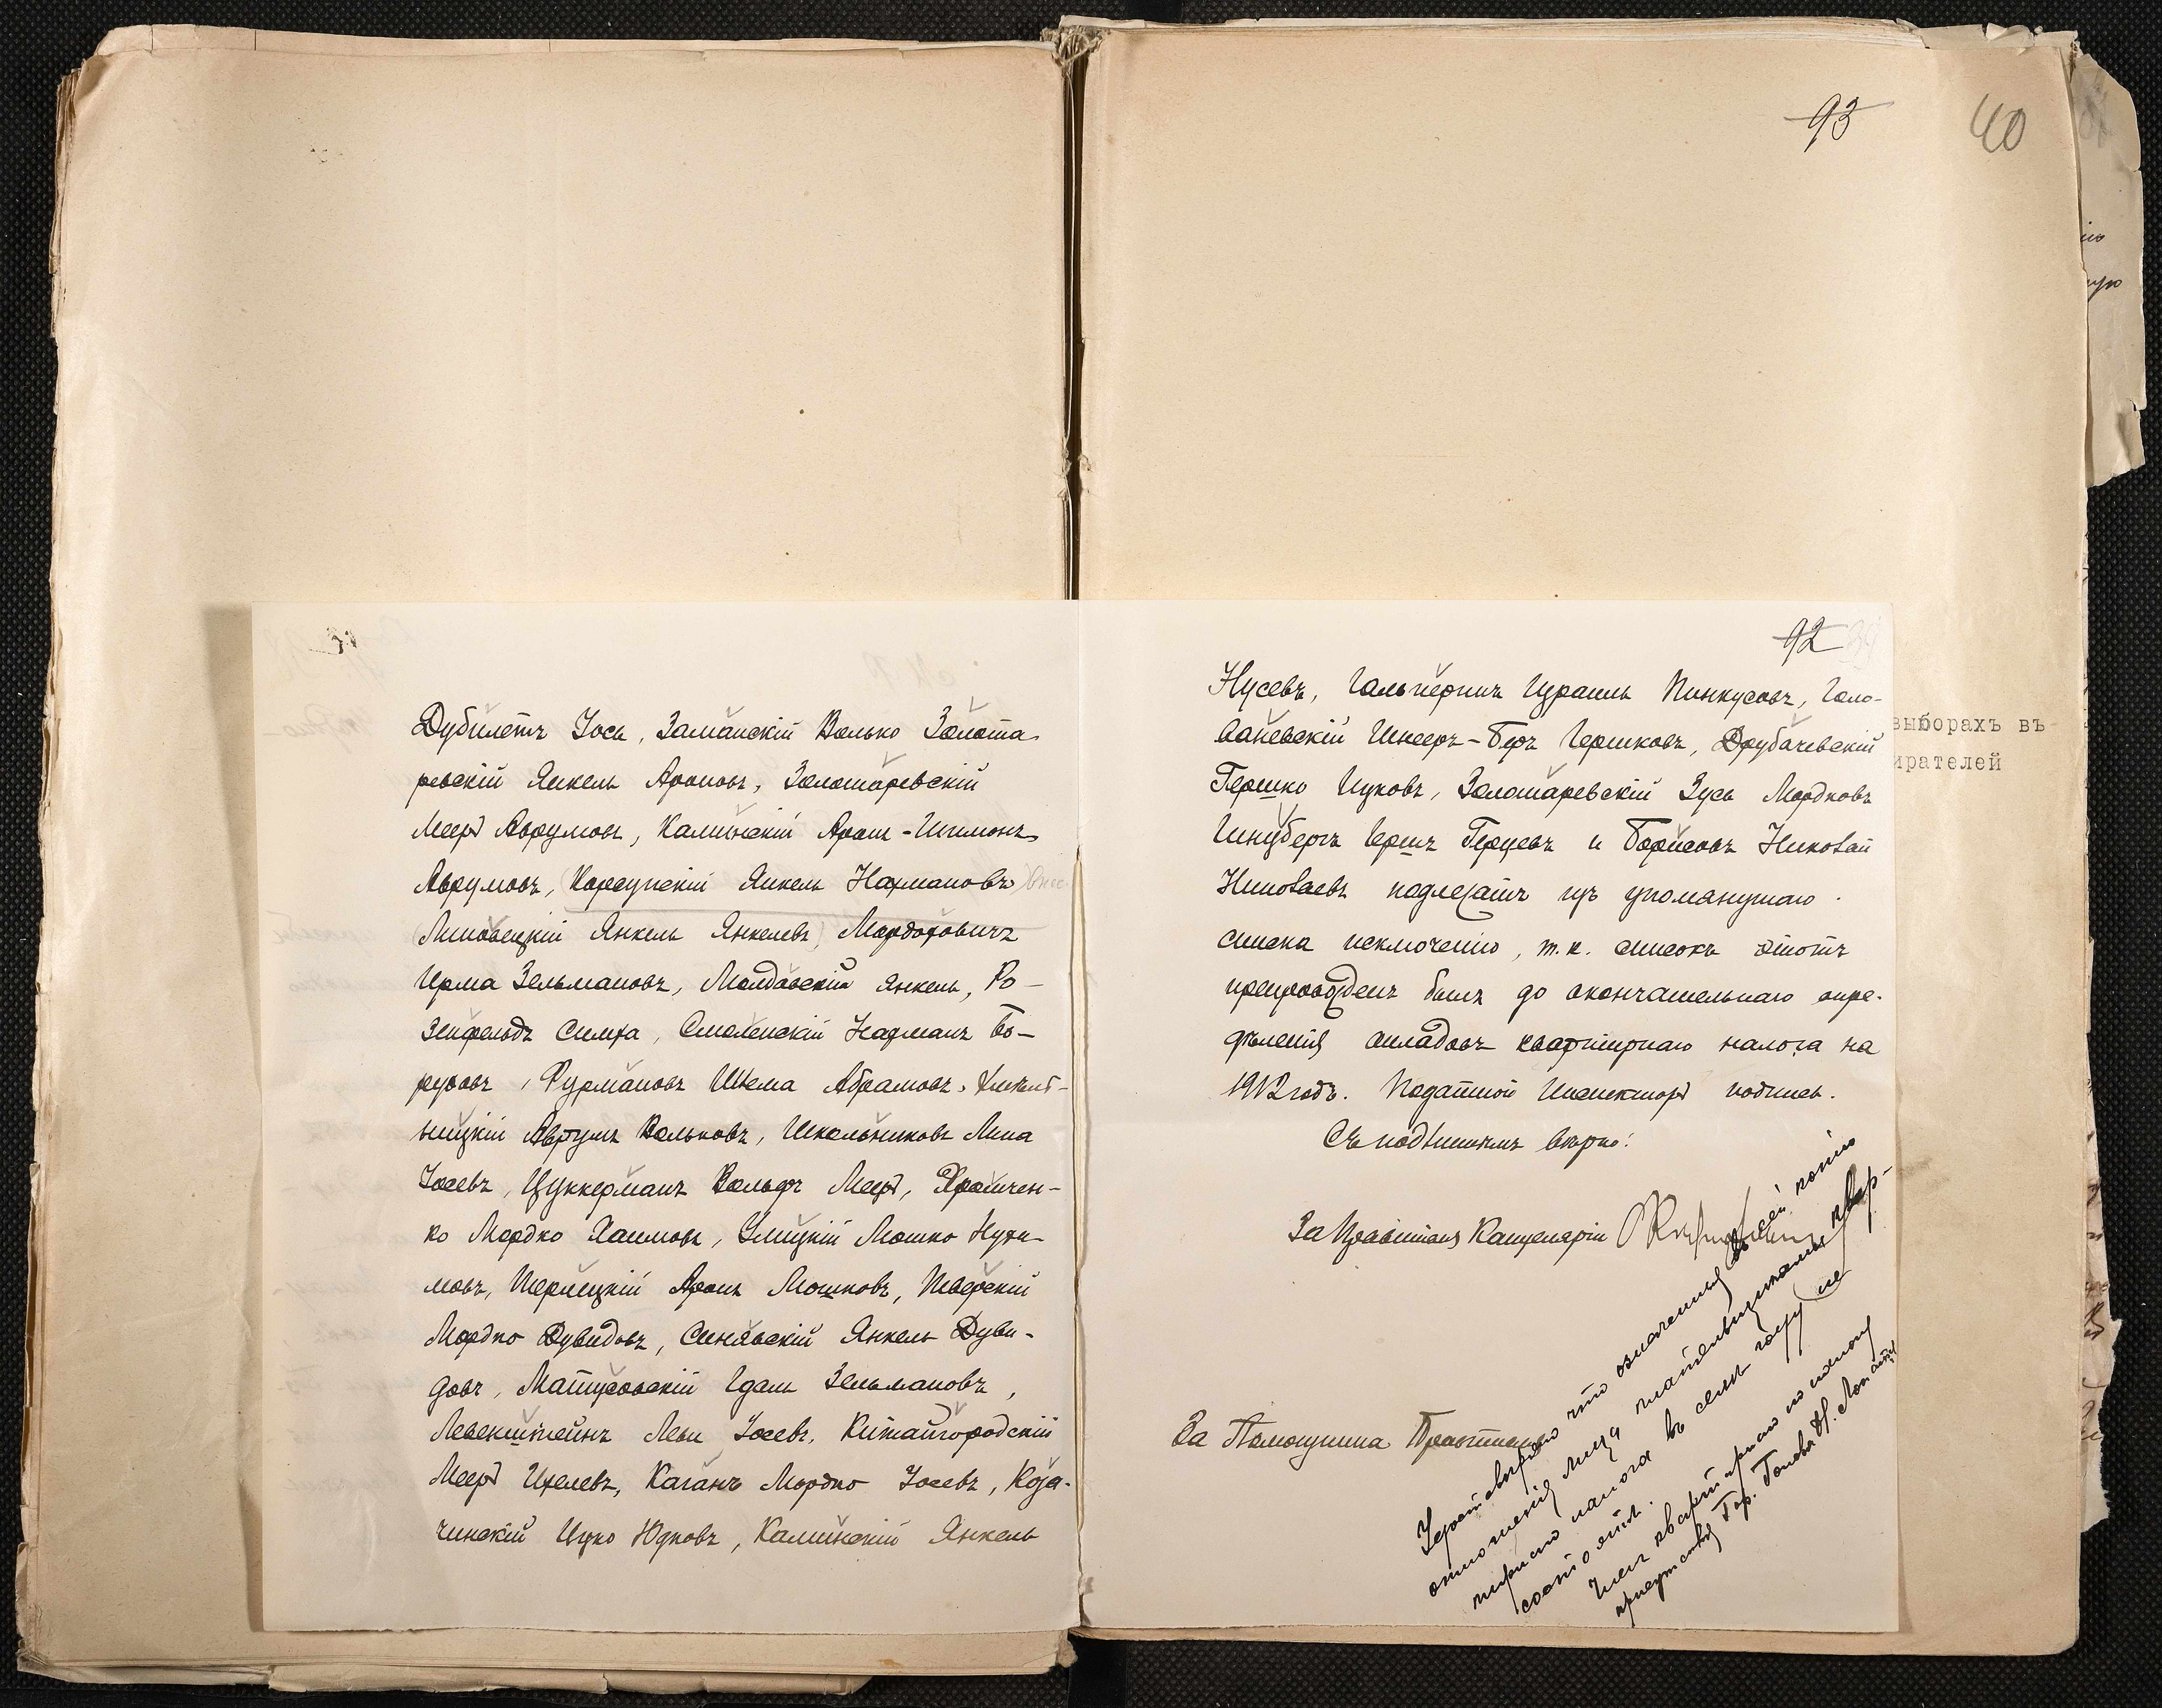 Дубилетъ Іось, Заманскій Волько Золота-
ревскій Янкель Ароновъ, Золотаревскій
Мееръ Аврумовъ, Калинскій Аронъ-Шимонъ
Аврумовъ, (Корсунскій Янкель Нахмановъ)
(Липовецкій Янкель Янкелевъ) Мордоховичъ
Ирма Зельмановъ, Молдавскій Янкель, Ро-
зенфельдъ Симха, Смоленскій Нахманъ Бо-
руховъ, Фурмановъ Шлема Абрамовъ,
ницкій Аврумъ Вольковъ, Школьниковъ Липа
Іосевъ, Цуккерманъ Вольфъ Мееръ, Хромчен-
ко Мордко Хаимовъ, Улицкій Мошко Нухи-
мовъ, Шерлецкій Аронъ Мошковъ, Тверскій
Мордко Дувидовъ, Синявскій Янкель Дуви-
довъ, Матусовскій Идаль Зельмановъ,
Левекштейнъ Леви Іосевъ, Китайгородскій
Мееръ Ицелевъ, Каганъ Мордко Іосевъ, Коза-
чинскій Ицко Юдковъ, Калинскій Янкель
93
40
92
Нусевъ, Гальперинъ Израиль Пинкусовъ, Голо-
ваневскій Шнееръ-Беръ Гершковъ, Друбачевскій
Гершко Ицковъ, Золотаревскій Зусь Мордковъ
Гинзбергъ Гершъ Герцевъ и Борисовъ Николай
Николаевъ подлежатъ изъ упомянутаго
списка исключенію, т.к. списокъ этотъ
препровожденъ былъ до окончательнаго опре-
дѣленія окладовъ квартирнаго налога на
1912 годъ. Податной Инспекторъ подпись.
Съ подлиннымъ вѣрно:
За Правителя Канцеляріи
За Помощника Правителя
Удостовѣряю что означенныя въ сей копіи
отношенія лица плательщиками квар-
тирнаго налога въ семъ году не
состоятъ.
Членъ квартирнаго по налогу
присутствія Гор. Голова Н.
выборахъ въ
ирателей